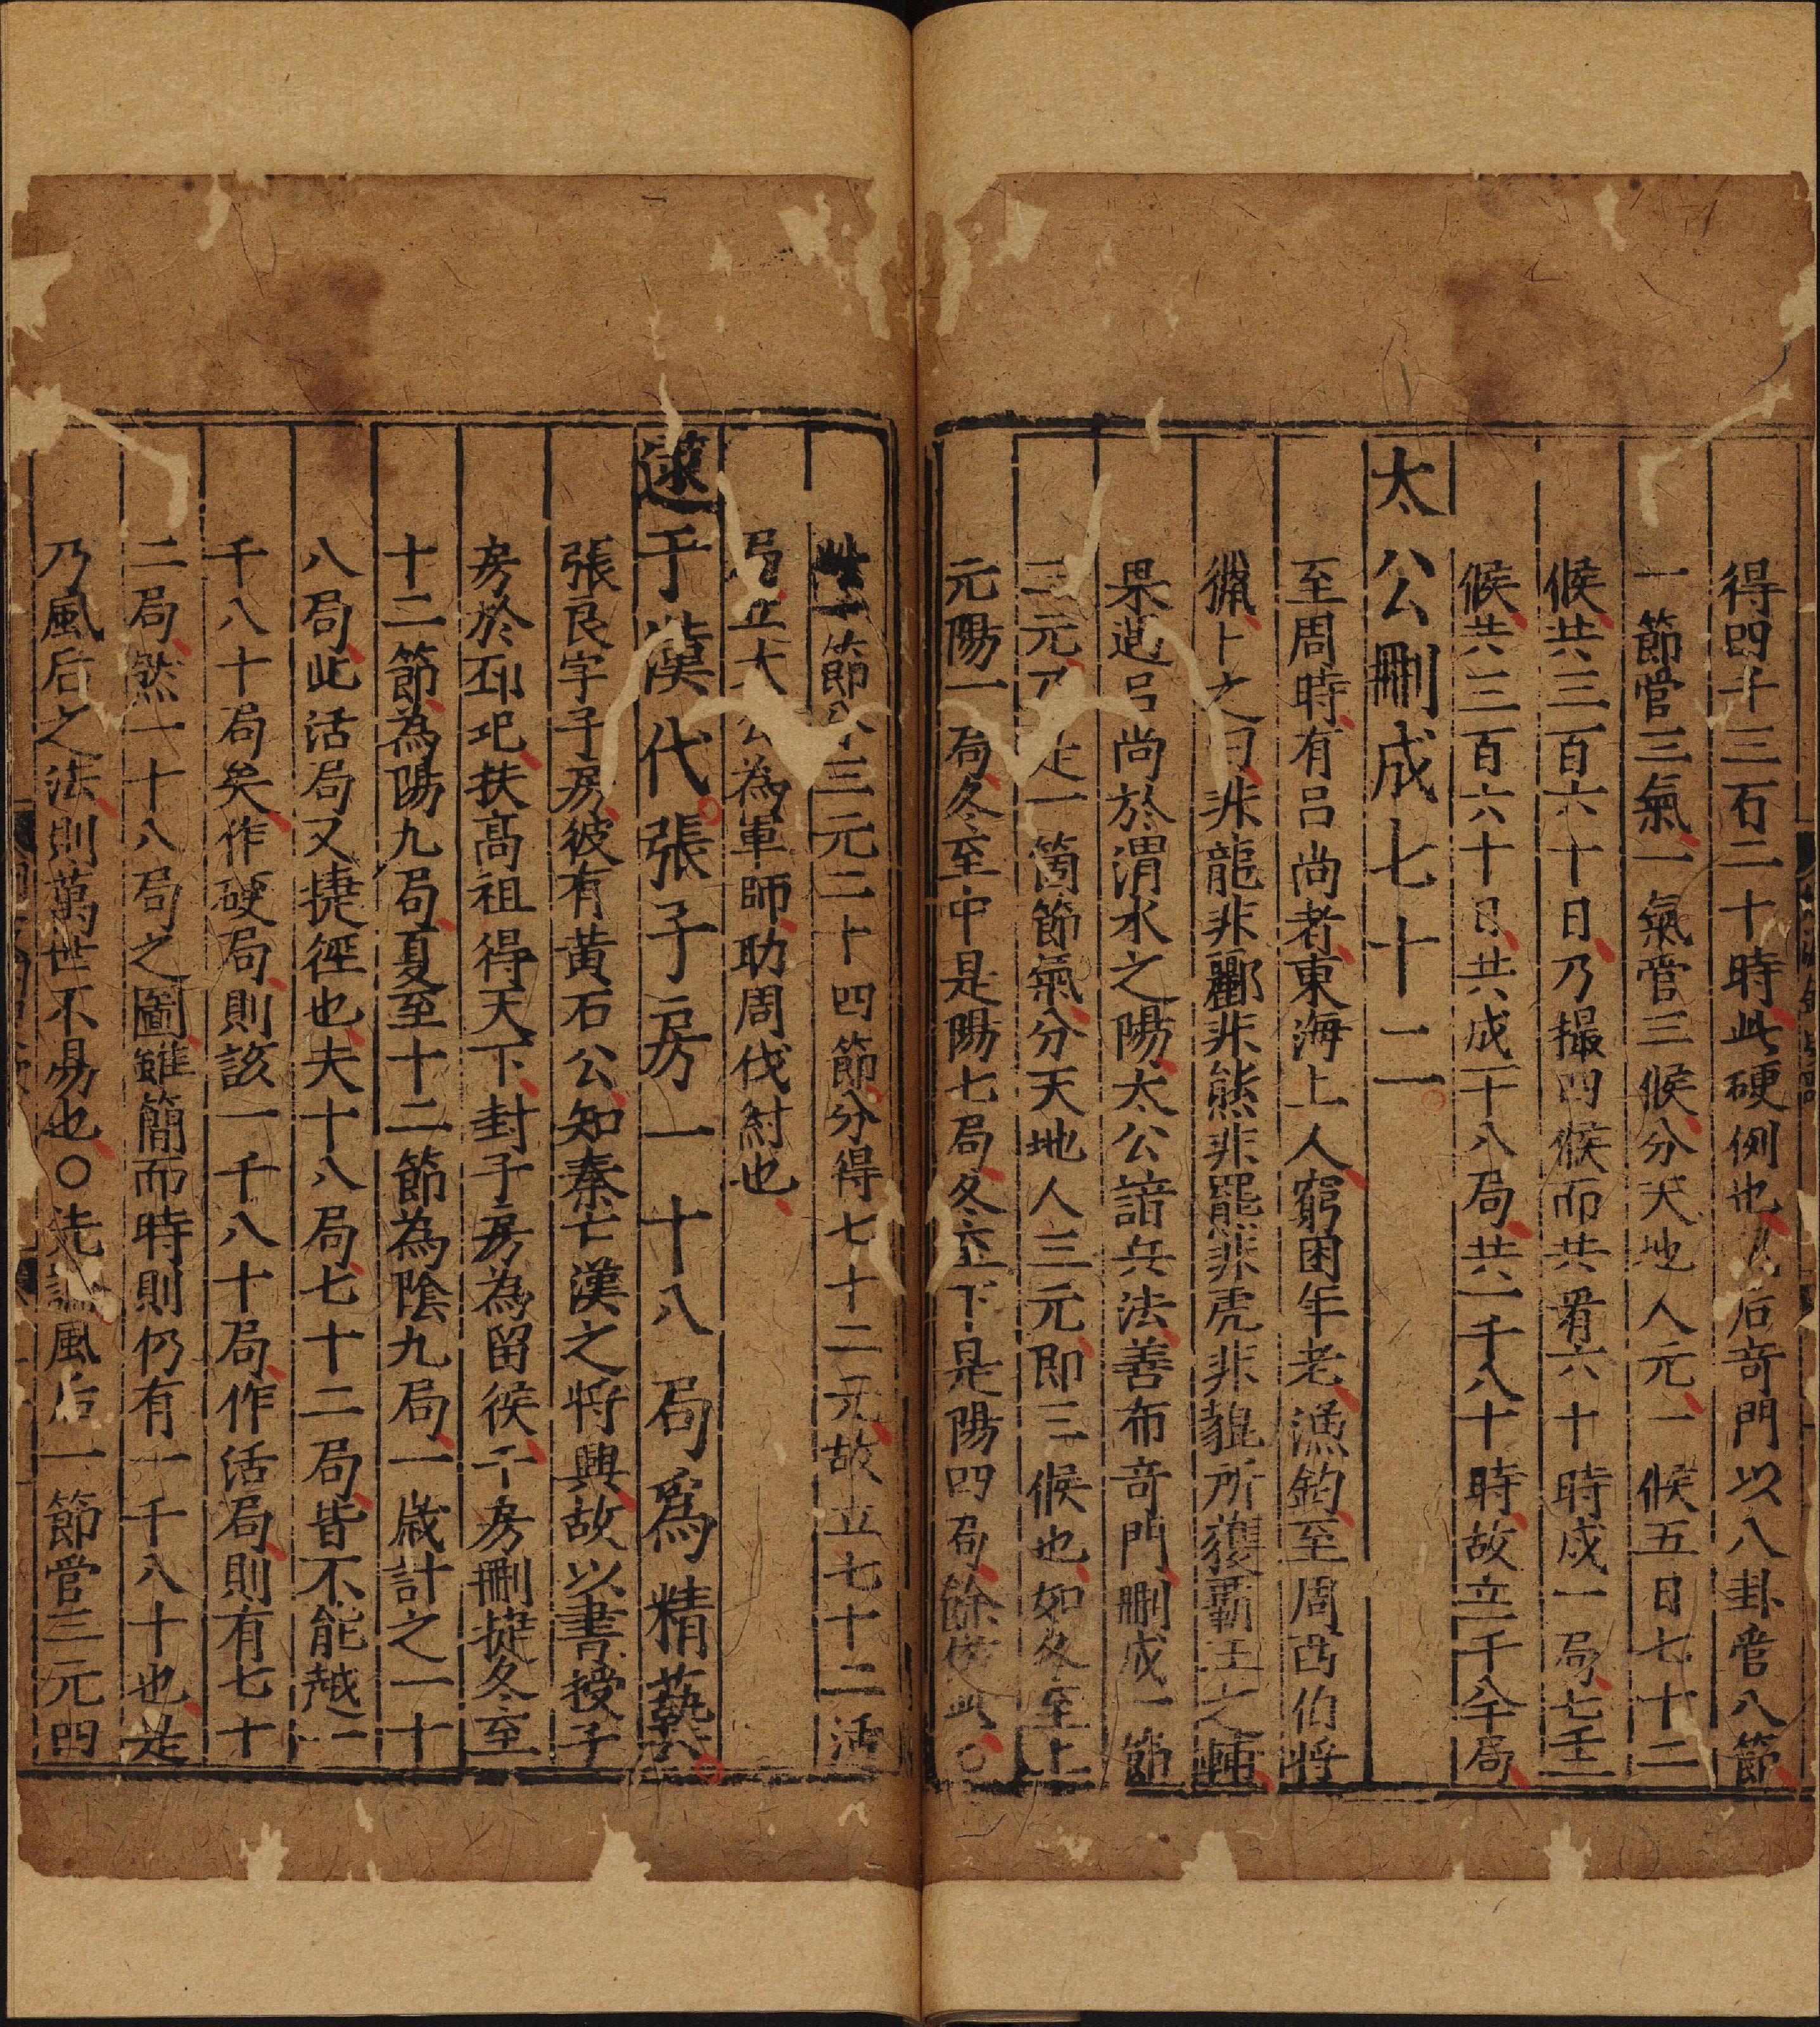 得四千三百二十時此硬例也風后奇門以八卦管八節
一節管三氣一氣管三候分天地人元一候五日七十二
候共三百六十日乃撮四候而共看六十時成一局七十二
候共三百六十日共成一十八局共一千八十時故立一千八十局
太公刪成七十二
至周時有呂尚者東海上人窮困年老漁釣至周西伯將
獵卜之曰非龍非彲非熊非羆非虎非貔所獲霸王之輔
果遇呂尚於渭水之陽太公諳兵法善布奇門刪成一節
三元乃是一箇節氣分天地人三元即三候也如冬至上
元陽一局冬至中是陽七局冬至下是陽四局餘倣此〇
一節分三元二十四節分得七十二元故立七十二活
局立太公為軍師助周伐紂也
逮于漢代張子房一十八局爲精藝
張良字子房彼有黃石公知秦亡漢之將興故以書授子
房於邳圯扶高祖得天下封子房為留侯子房刪捷冬至
十二節為陽九局夏至十二節為陰九局一歲計之一十
八局此活局又捷徑也夫十八局七十二局皆不能越一
千八十局矣作硬局則該一千八十局作活局則有七十
二局然一十八局之圖雖簡而時則仍有一千八十也是
乃風后之法則萬世不易也〇先論風后一節管三元四